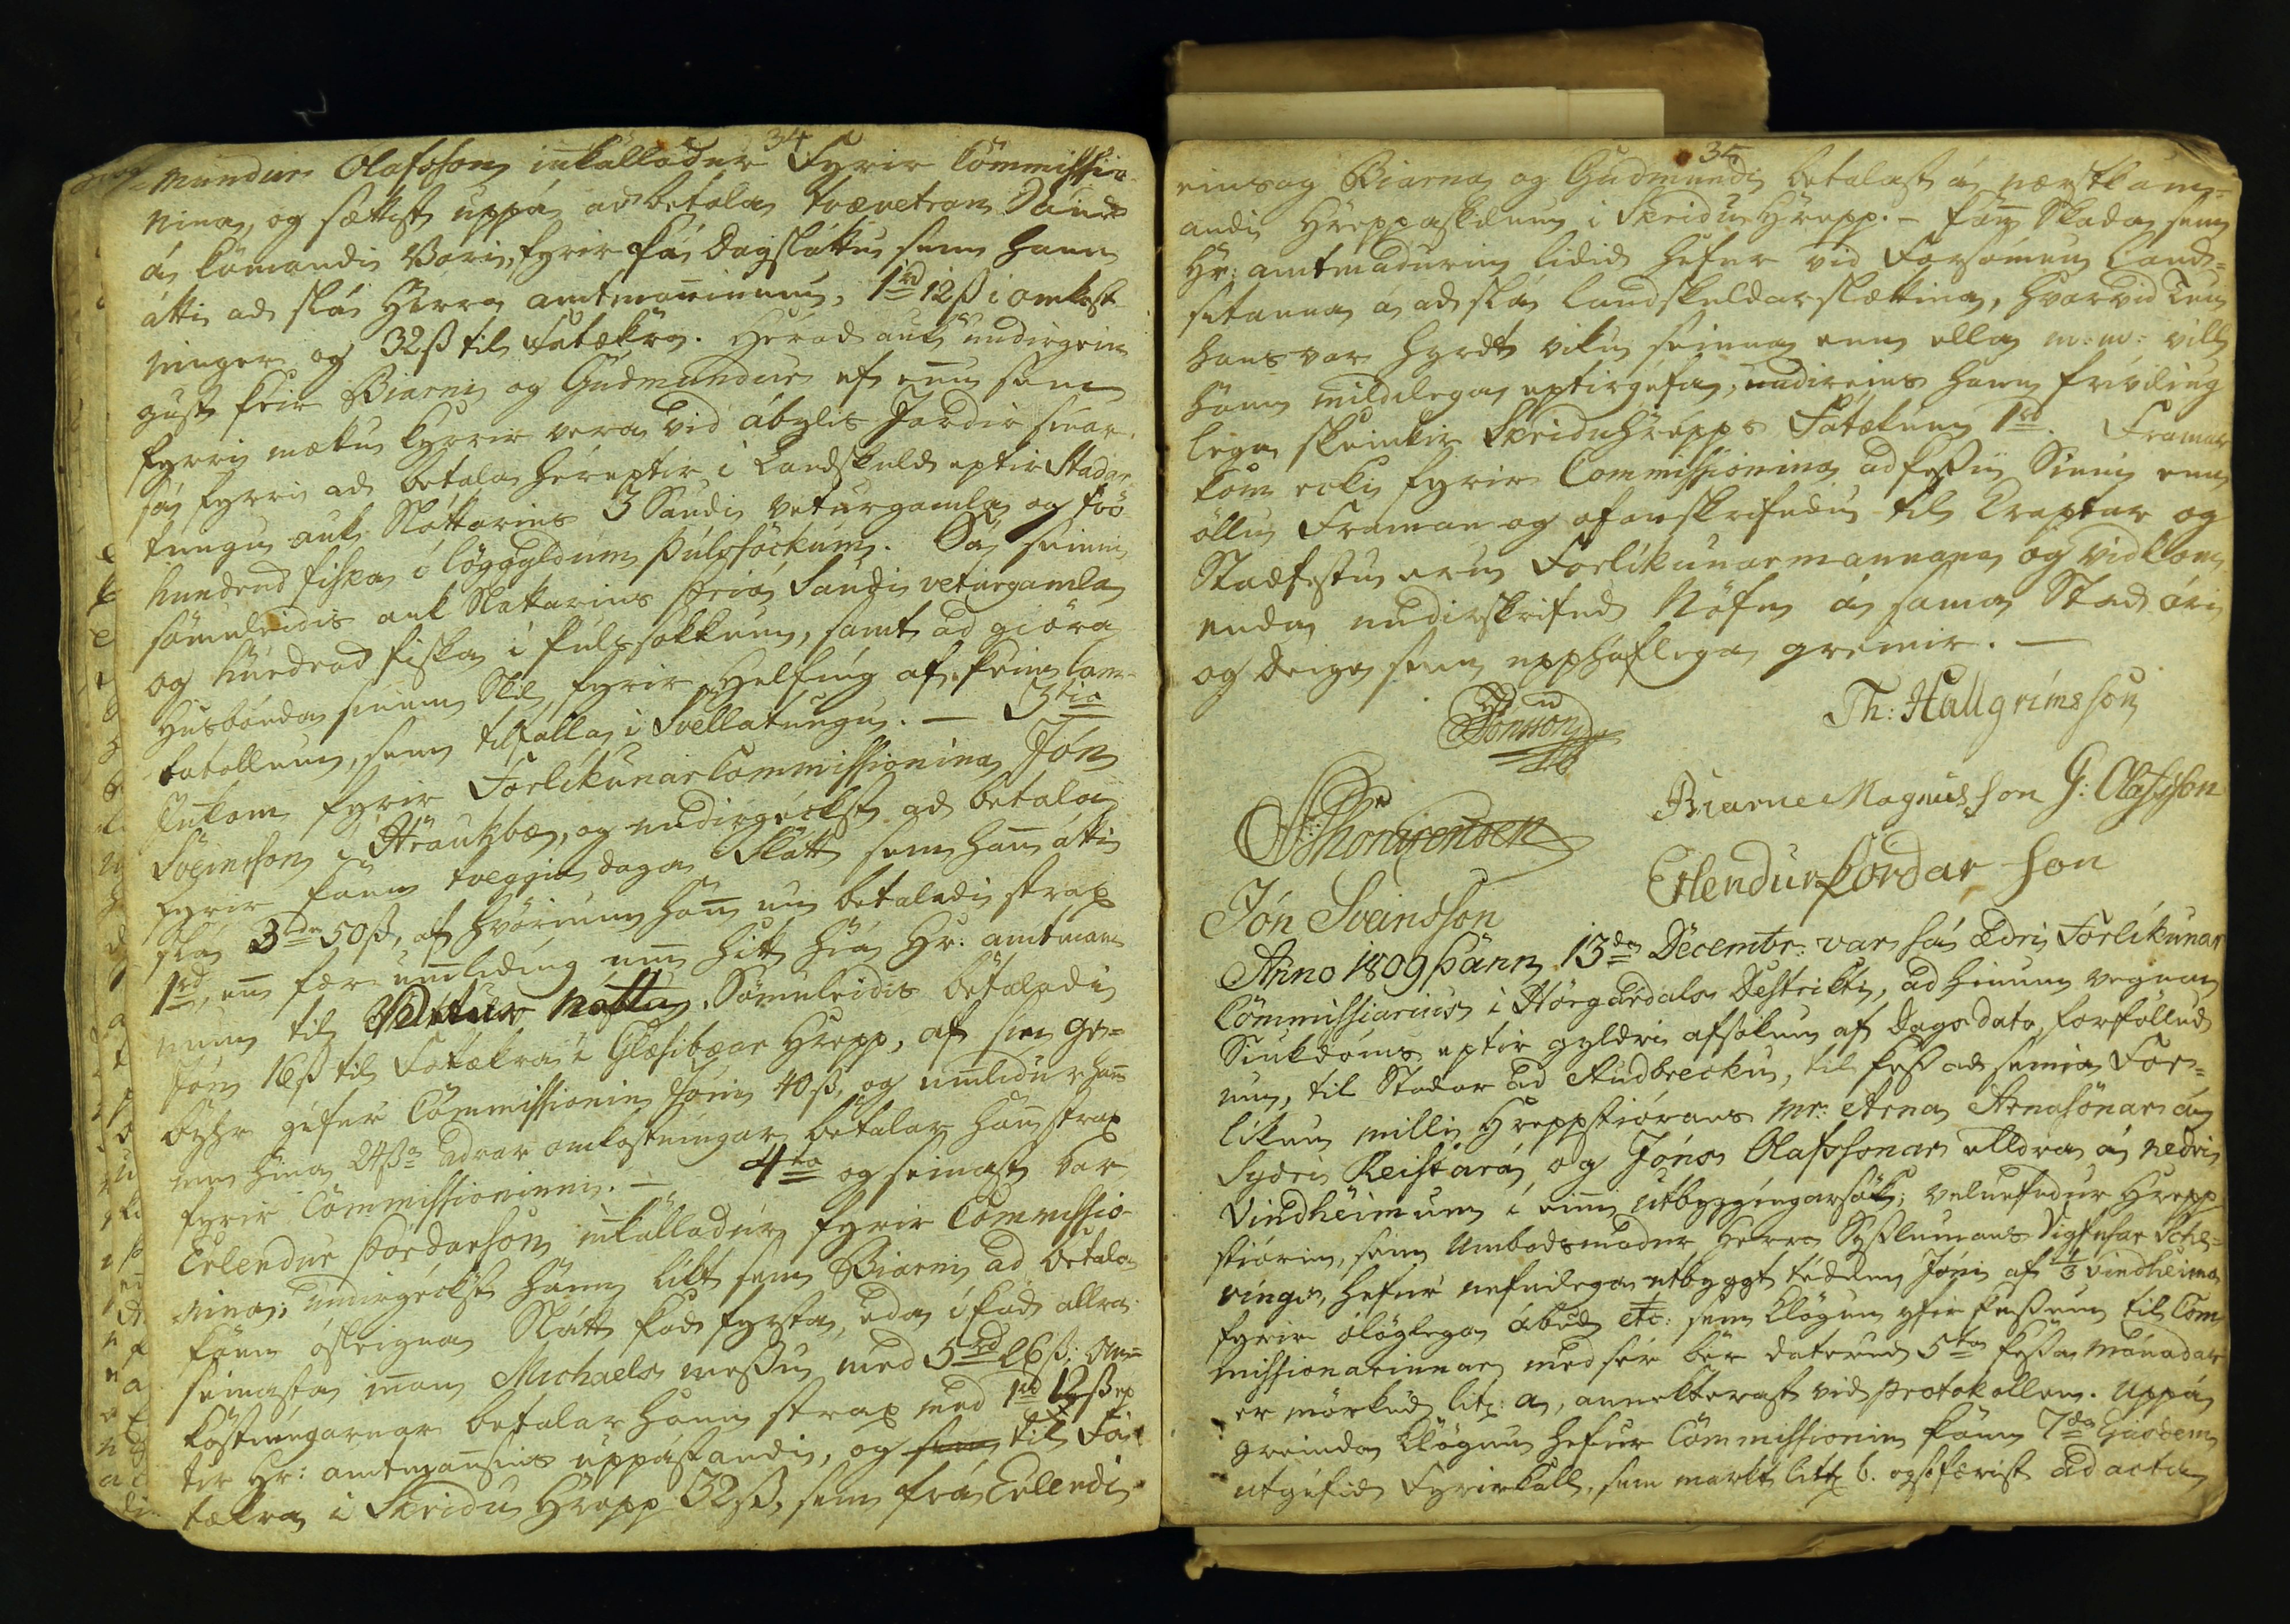 34
mundur Olafsson inkalladur Fyrir Commissio-
nina, og sættist uppá ad betala tvævetran Saud
á komandi Vori, fyrir þá Dagsláttu sem hann
átti ad slá Herra amtmanninum, 1rd 12ß i omkost
ninger og 32ß til Fatækra. Herad auk undirgein
gust þeir Biarni og Gudmundur ef enn sem
fyrri mættu kyrrir vera vid ábylis Jardir sinar.
sá fyrri ad betala héreptir i Landskuld eptir Stadar
tungu auk Slattarins 3 Saudi veturgamla og tvö
hundrud fiska i löggyldum Þulssöckum. Sá seinni
sömuleidis auk Slattarins þria Saudi veturgamla
og hundrad fiska i fulssokkum, samt ad giöra
Husbonda sinum Skil fyrir Helfing af þeim lam-
batollum, sem tilfalla i Svellatungu. — 3tia
Inkom fyrir Forlikunar Commissionina Jón
Sveinsson i Hraukbæ, og undirgéckst ad betala
fyrir þann tveggia daga Slátt sem hann átti
slá 3rdr 50ß, af hvörium hann nu betaladi strax
1rd, en fær umliding um hitt hiá Hr: amtmann
num til Vettur nátta. Sömuleidis betaladi
Jón 16ß til Fatækra i Glæsibæar Hrepp, af sien ge=
byhr gefur Commissionin Jóni 40ß, og umlidur han
um hina 24ß adrar omkostningar betalar hann strax
fyrir Commissioninni. — 4to og seinast var
Erlendur Þórdarson inkalladur fyrir Commissio
nina; undirgéckst hann likt sem Biarni ad betala
þann ósleigna Slátt þad fyrsta, eda i þad allra
seinasta innan Michaels messu med 5rd 26ß; Om=
kostningarnar betalar hann strax med 1rd 12ß ep
ter Hr: amtmansins uppástandi, og til Fá
tækra i Skridu Hrepp 32ß, sem frá Erlendi
35
einsog Biarna og Gudmundi betalast á næstkom=
andi Hreppaskilum i Skridu Hrepp. — Þann Skada sem
Hr: amtmadurin lidid hefur vid Forsömun Land=
setanna á ad slá landskuldarslættina, hvarvid Tun
hans var hyrdt viku seinna enn ella m: m: vill
hann mildilega eptirgefa, undireins hann frivilug
lega skeinkir Skriduhrepps Fatækum 1rd. Framar
kom ecki fyrir Commissionina ad þessu Sinni enn
öllu Framan og ofanskrifudu til Kraptar og
Stadfestu eru Forlikunarmannana og vidkom
enda undirskrifud Nöfn á sama Stad ári
og deigi sem upphaflega greinir. —
Jonsson
Th: Hallgrímsson
Biarne Magnússon G: Olafsson
S Thorarensen
Erlendur Þordar son
Jón Sveinsson
Anno 1809 Þann 13da Decembr: var sá ædri Forlikunar
Commissiarius i Hörgárdals Destrikti, ad hinum vegna
Siukdóms eptir gyldri afsokun af Dags dato, forföllud
um, til Stadar ad Audbrecku, til þess ad semia For=
likun milli Hreppstiórans Mr: Arna Arnasonar á
Sydri Reistará, og Jóns Olafssonar elldra á nedri
Vindheimum i einni utbyggingarsök; velnefndur Hrepp
stiórin, sem Umbodsmadur Herra Syslumans Vigfusar Sche=
vings, hefur nefnilega utbyggt tédum Jóni af 1/3 Vindheima
fyrir ólöglega ábud etc: sem Klögun yfir þessum til Com
missionarinnar med sér ber daterud 5ta þessa mánadar
er mörkud litr: a, annekterast vid Protokollen. Uppá
greinda Klögun hefur Commissionin þann 7da Ejusdem
utgefid Fyrirkall, sem markt littr b. og so færist ad acta